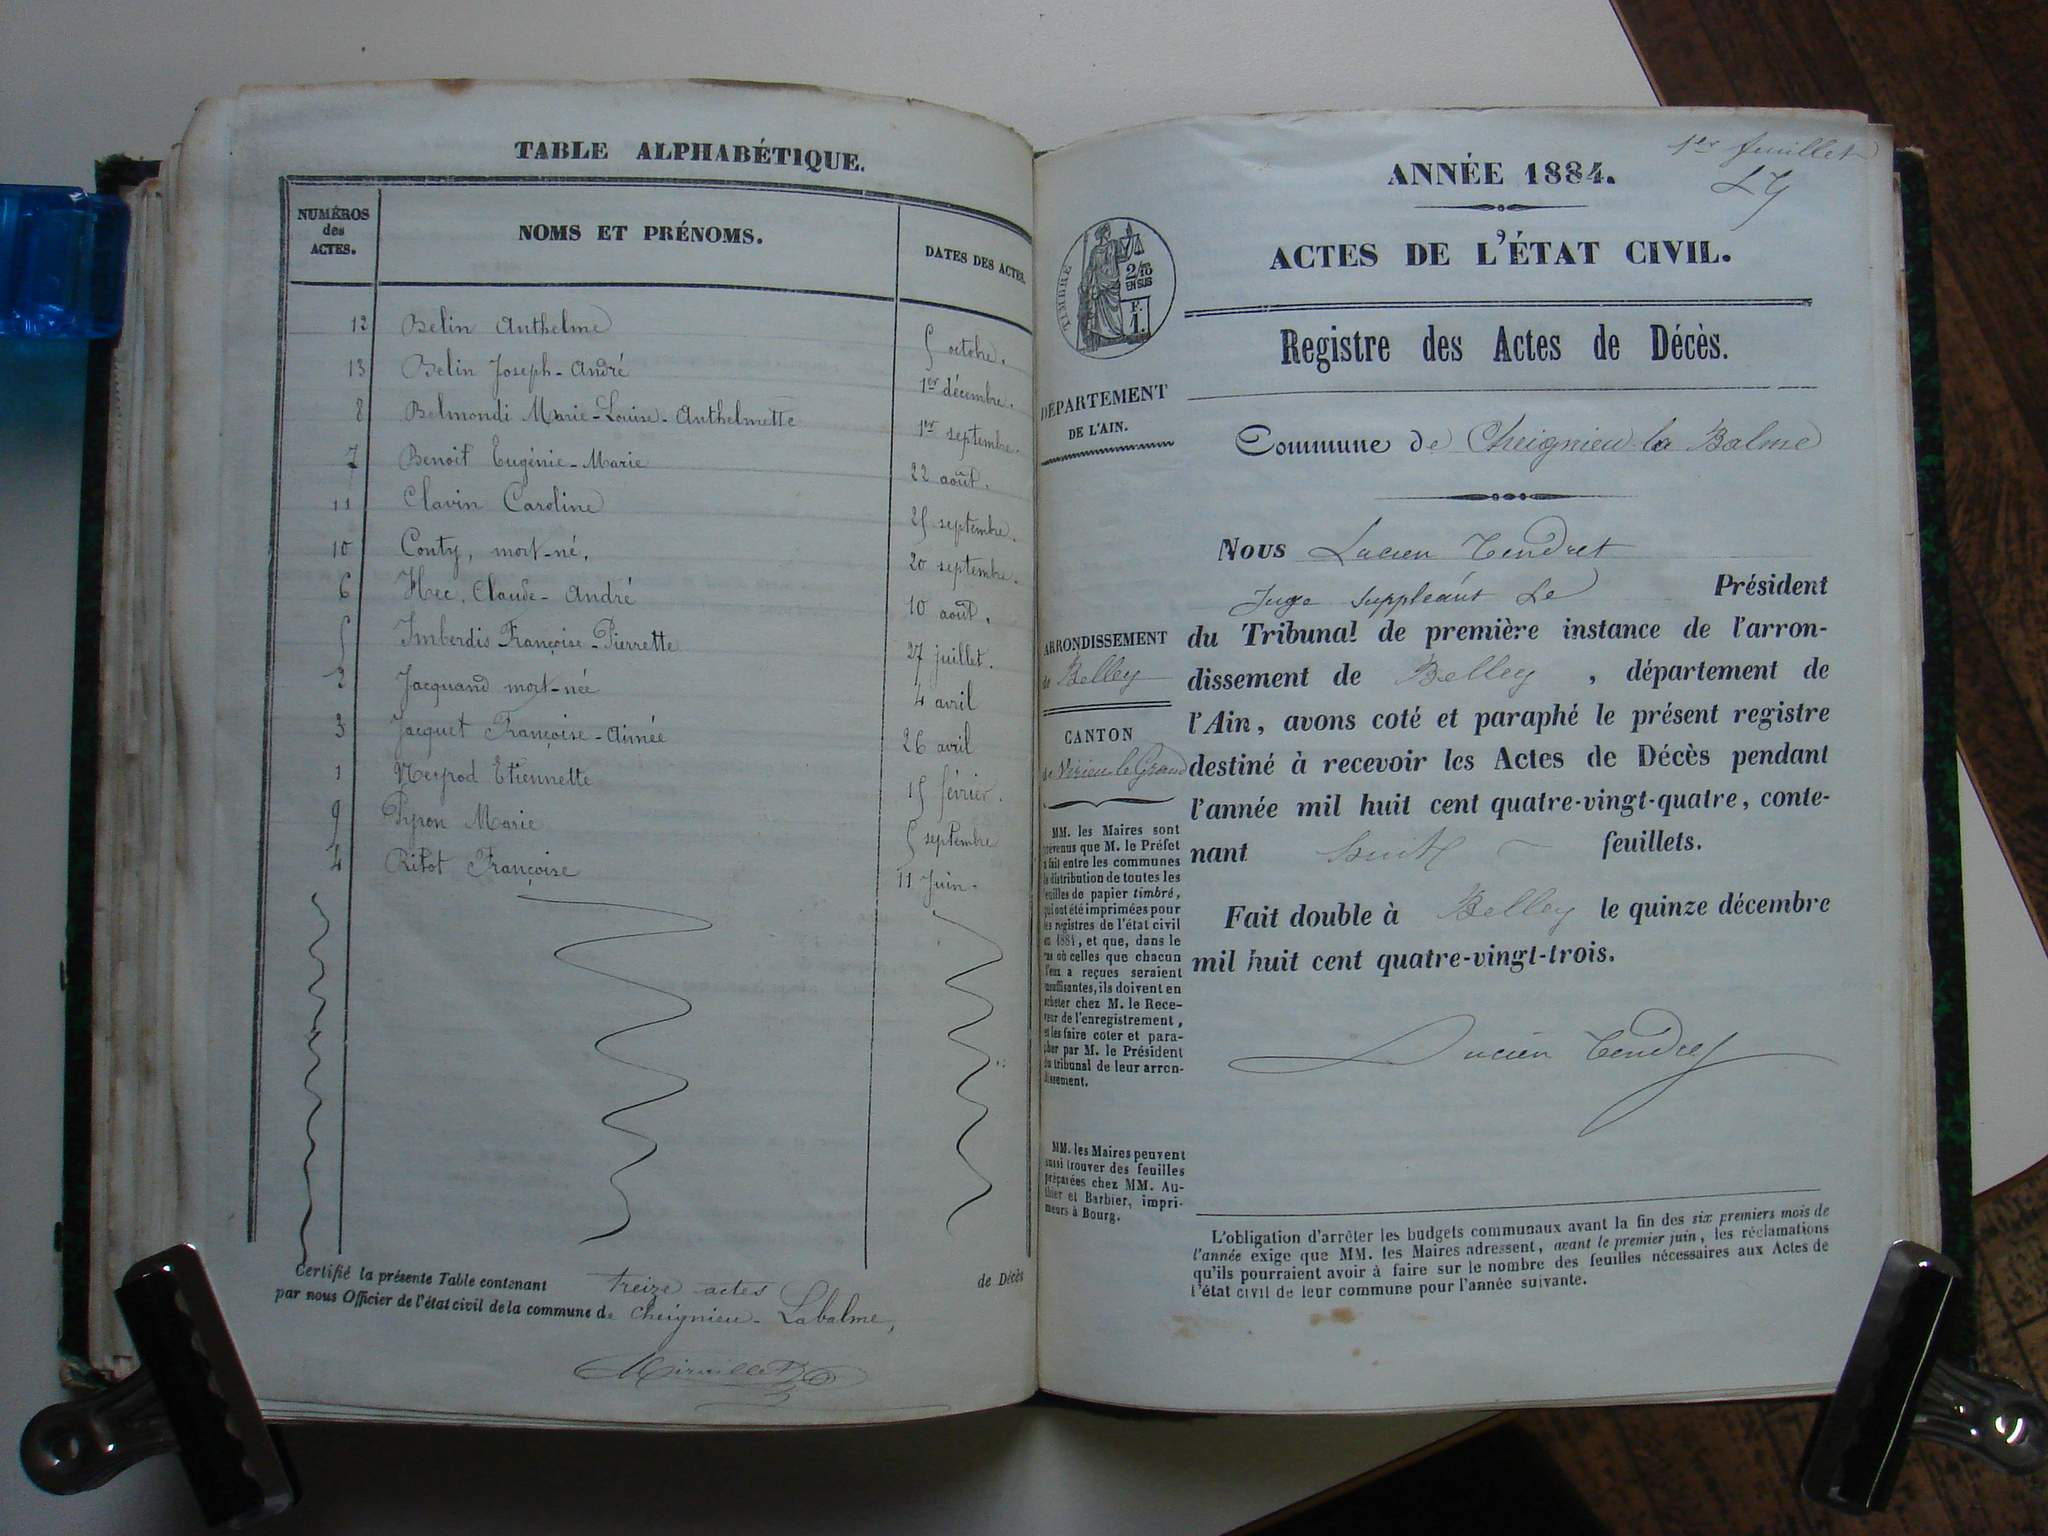 TABLE ALPHABÉTIQUE.
NUMÉROS des ACTES.
NOMS ET PRÉNOMS.
DATES DES ACTES.
12 Belin Anthelme 5 octobre.
13 Belin Joseph-André 1er décembre.
8 Belmondi Marie-Louise-Anthelmette 1er septembre.
7 Benoit Eugénie-Marie 22 août.
11 Clavin Caroline 25 septembre.
10 Conty, mort-né. 20 septembre.
6 Hec, Claude-André 10 août.
5 Imberdis Françoise-Pierrette 27 juillet.
2 Jacquand mort-née 4 avril
3 Jacquet Françoise-Aimée 26 avril
1 Etiennette 15 février.
9 Pyron Marie 5 septembre
4 Ritot Françoise 11 Juin.
Certifié la présente Table contenant treize actes de Décès
par nous Officier de l'état civil de la commune de Cheignieu-Labalme,
1er feuillet
LT
ANNÉE 1884.
ACTES DE L'ÉTAT CIVIL.
TIMBRE
2/10
EN SUS
F.
1.
Registre des Actes de Décès.
DÉPARTEMENT
DE L'AIN.
Commune de Cheignieu la Balme
Nous Lucien Tendret
Juge suppléant Le Président
du Tribunal de première instance de l'arron-
dissement de Belley, département de
l'Ain, avons coté et paraphé le présent registre
destiné à recevoir les Actes de Décès pendant
l'année mil huit cent quatre-vingt-quatre, conte-
nant huit feuillets.
Fait double à Belley le quinze décembre
mil huit cent quatre-vingt-trois.
Lucien Tendret
ARRONDISSEMENT
de Belley
CANTON
de Virieu le Grand
MM. les Maires sont
prévenus que M. le Préfet
a fait entre les communes
la distribution de toutes les
feuilles de papier timbré,
qui ont été imprimées pour
les registres de l'état civil
en 1884, et que, dans le
cas où celles que chacun
d'eux a reçues seraient
insuffisantes, ils doivent en
acheter chez M. le Rece-
veur de l'enregistrement,
et les faire coter et para-
pher par M. le Président
du tribunal de leur arron-
dissement.
MM. les Maires peuvent
aussi trouver des feuilles
préparées chez MM. Au-
thier et Barbier, impri-
meurs à Bourg.
L'obligation d'arrêter les budgets communaux avant la fin des six premiers mois de
l'année exige que MM. les Maires adressent, avant le premier juin, les réclamations
qu'ils pourraient avoir à faire sur le nombre des feuilles nécessaires aux Actes de
l'état civil de leur commune pour l'année suivante.